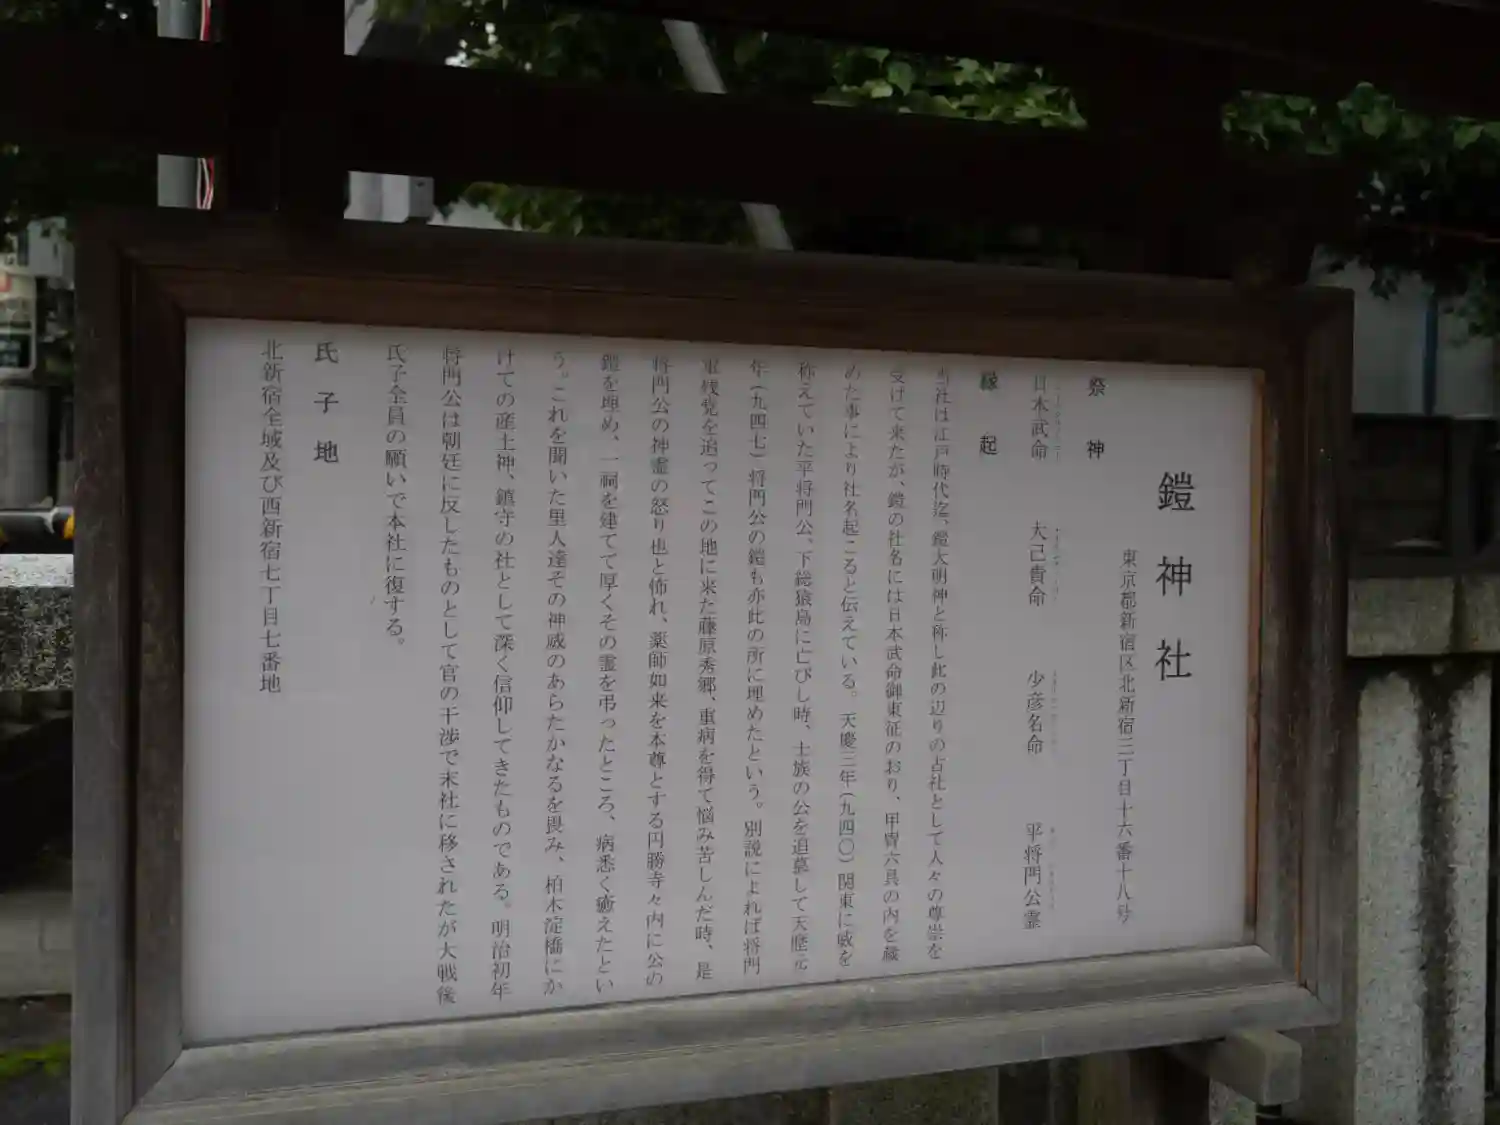 鎧神社
東京都新宿区北新宿三丁目十六番十八号
祭神
日本武命 大己貴命 少彦名命 平将門公霊
縁起
当社は江戸時代迄、鎧大明神と称し此の辺りの古社として人々の尊崇を
受けて来たが、鎧の社名には日本武命御東征のおり、甲冑六具の内を蔵
めた事により社名起こると伝えている。天慶三年（九四〇）関東に威を
称えていた平将門公、下総猿島に亡びし時、土族の公を追慕して天暦元
年（九四七）将門公の鎧も亦此の所に埋めたという。別説によれば将門
軍残党を追ってこの地に来た藤原秀郷、重病を得て悩み苦しんだ時、是
将門公の神霊の怒り也と怖れ、薬師如来を本尊とする円勝寺々内に公の
鎧を埋め、一祠を建てて厚くその霊を弔ったところ、病悉く癒えたとい
う。これを聞いた里人達その神威のあらたかなるを畏み、柏木淀橋にか
けての産土神、鎮守の社として深く信仰してきたものである。明治初年
将門公は朝廷に反したものとして官の干渉で末社に移されたが大戦後
氏子全員の願いで本社に復する。
氏子地
北新宿全域及び西新宿七丁目七番地